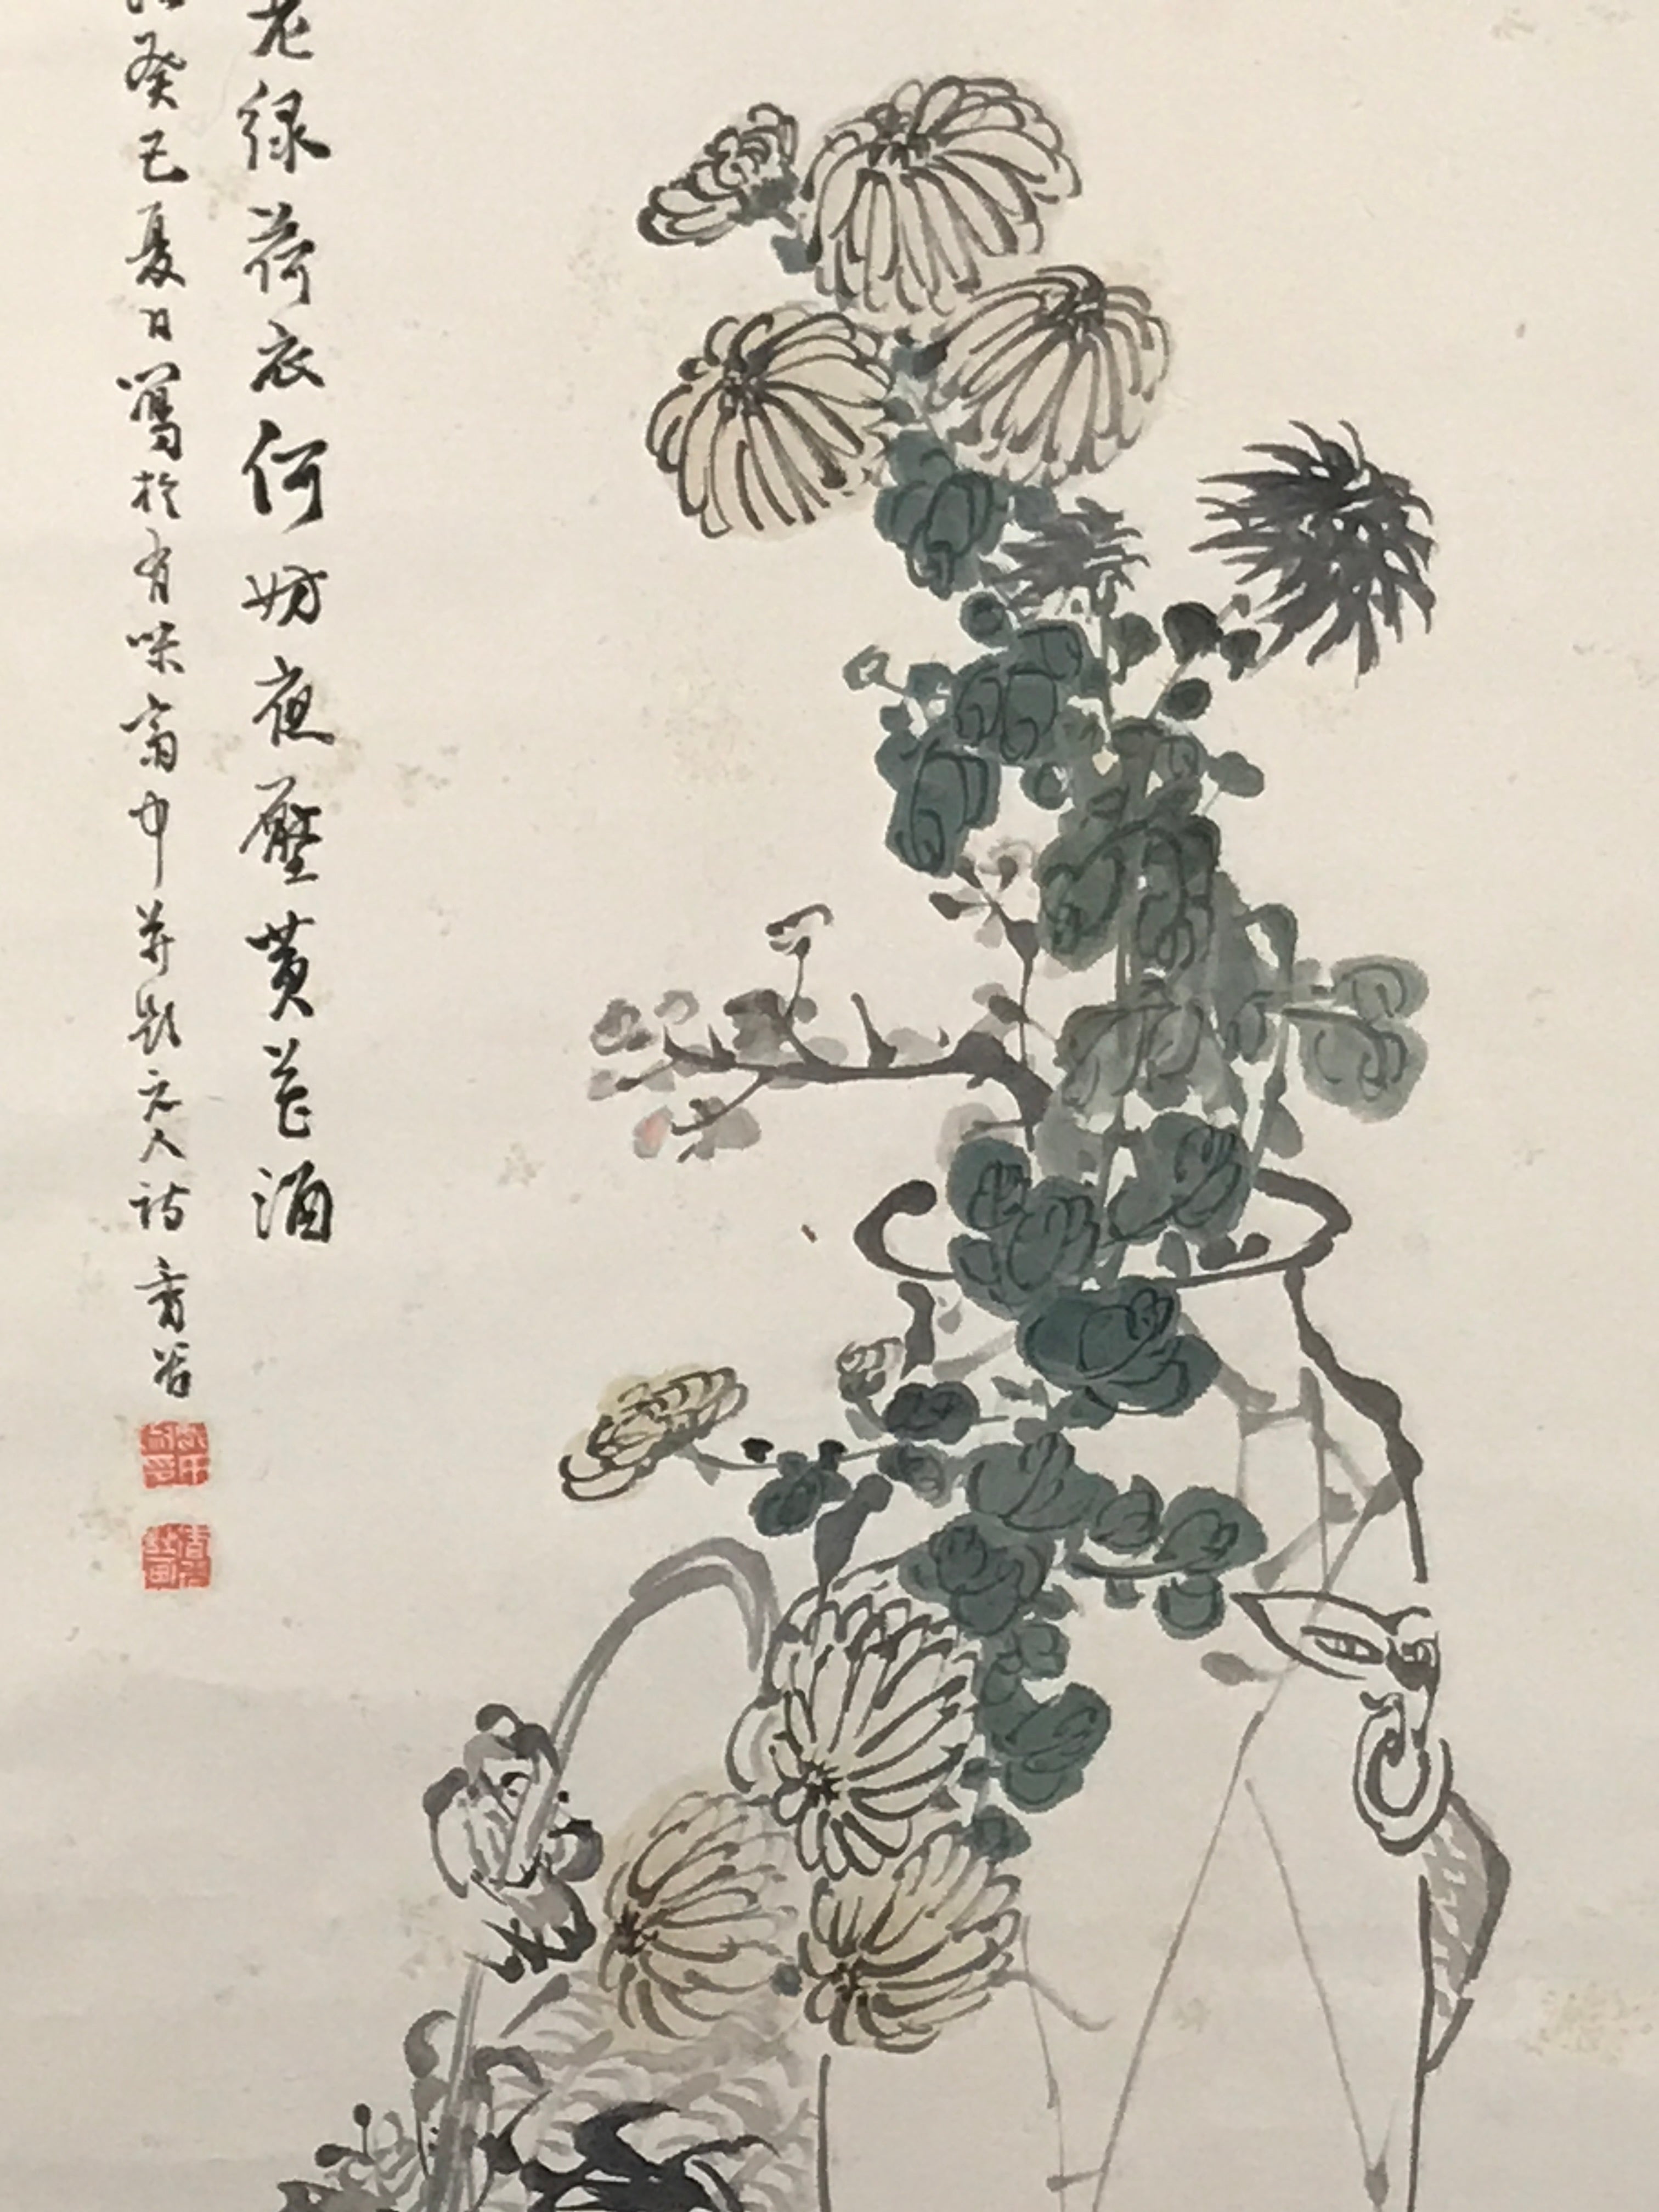 老綠荷衣何妨夜壓黃花酒
癸巳夏日寫於有味齋中并題元人詩